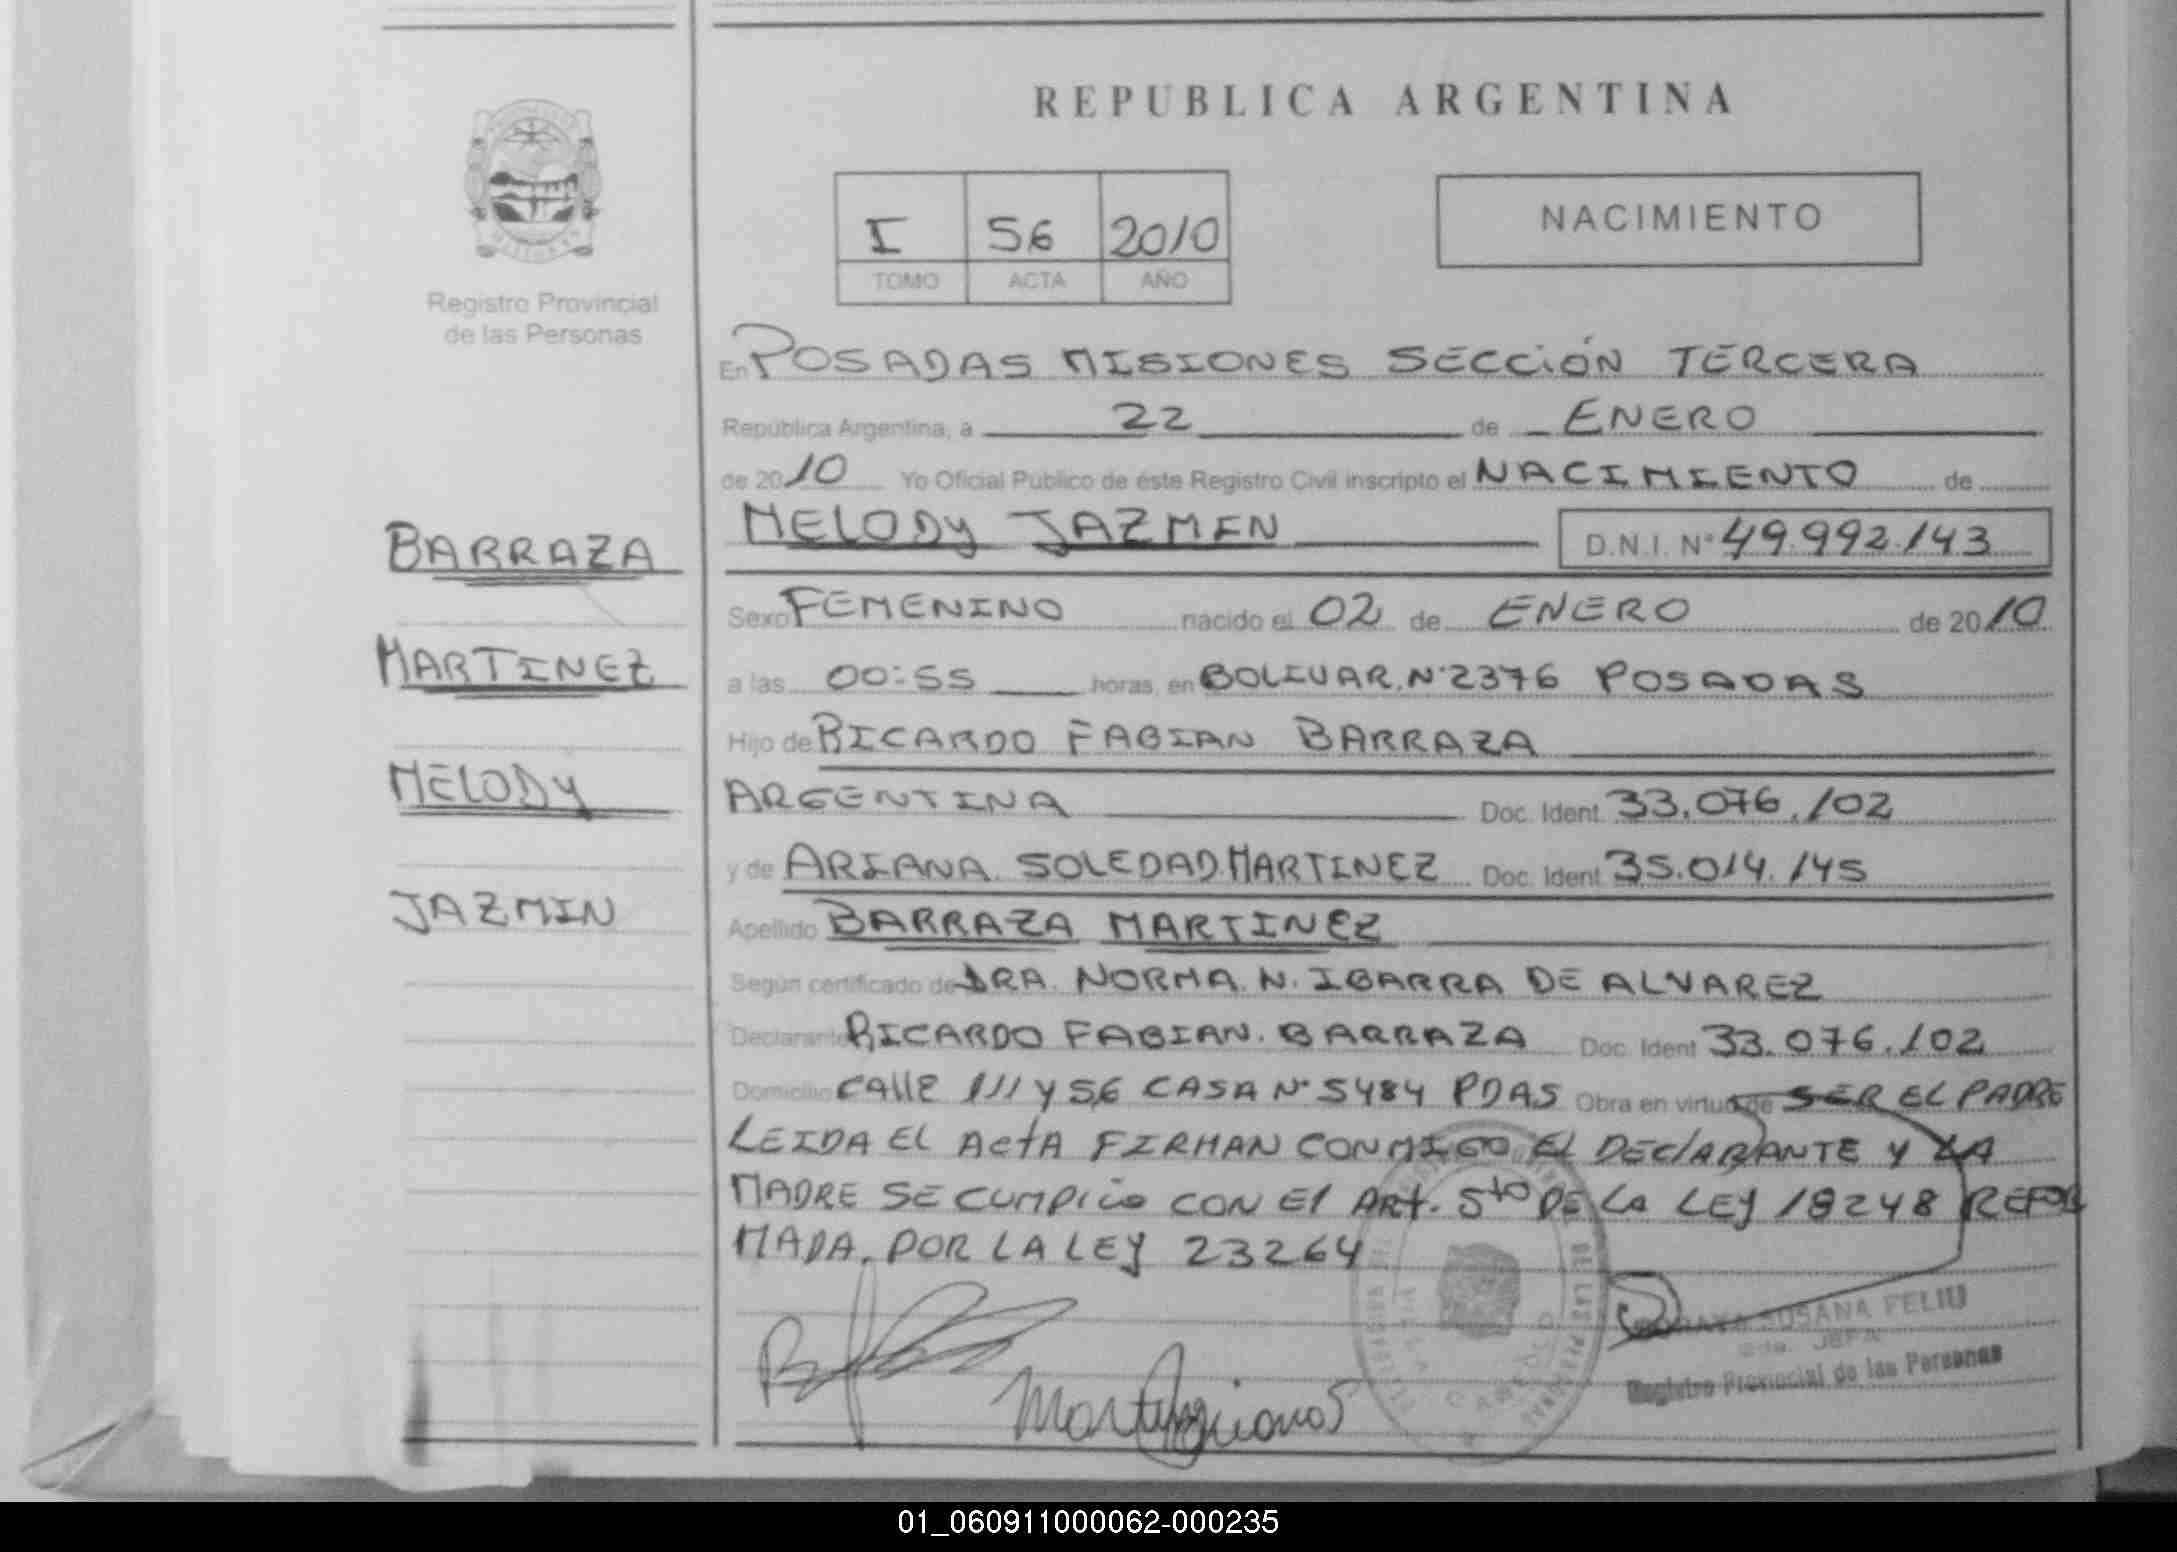 REPUBLICA ARGENTINA
Registro Provincial
de las Personas
I 56 2010
TOMO ACTA AÑO
NACIMIENTO
En POSADAS MISIONES SECCIÓN TERCERA
República Argentina, a 22 de ENERO
de 2010 Yo Oficial Público de éste Registro Civil inscripto el NACIMIENTO de
MELODY JAZMIN D.N.I. N° 49.992.143
Sexo FEMENINO nacido el 02 de ENERO de 2010
a las 00:55 horas, en BOLIVAR N° 2376 POSADAS
Hijo de RICARDO FABIAN BARRAZA
ARGENTINA Doc. Ident. 33.076.102
y de ARIANA SOLEDAD MARTINEZ Doc. Ident. 35.014.145
Apellido BARRAZA MARTINEZ
Según certificado de DRA. NORMA. N. IBARRA DE ALVAREZ
Declarante RICARDO FABIAN. BARRAZA Doc. Ident. 33.076.102
Domicilio CALLE 111 Y 56 CASA N° 5484 PDAS Obra en virtud de SER EL PADRE
LEIDA EL ACTA FIRMAN CONMIGO EL DECLARANTE Y LA
MADRE SE CUMPLIO CON EL ART. 5to DE LA LEY 18248 REFOR
MADA. POR LA LEY 23264
BARRAZA
MARTINEZ
MELODY
JAZMIN
SUSANA FELIU
Registro Provincial de las Personas
01_060911000062-000235